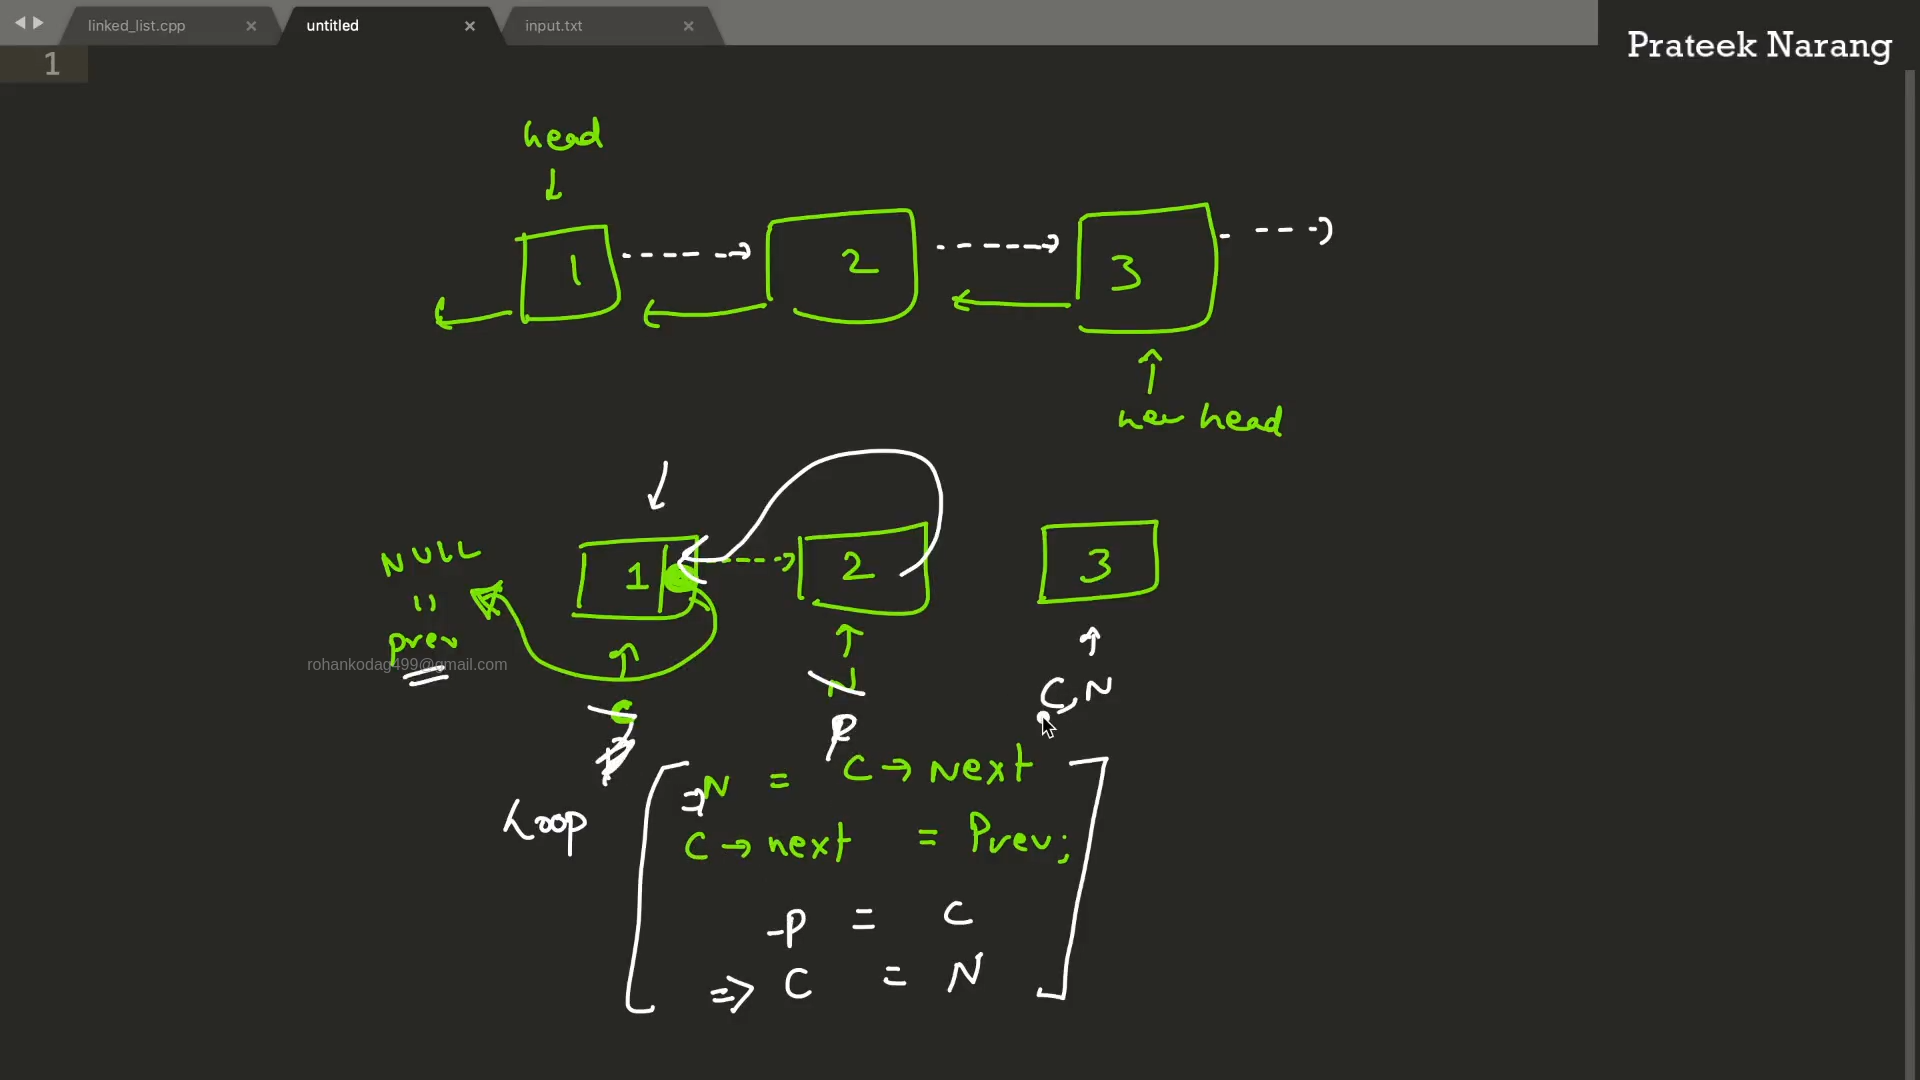 linked_list.cpp × untitled × input.txt ×
Prateek Narang
1
head
1 2 3
new head
NULL
"
prev
1 2 3
rohankodag499@gmail.com
C N C, N
P P
N = C → Next
Loop
C → next = Prev;
P = C
=> C = N